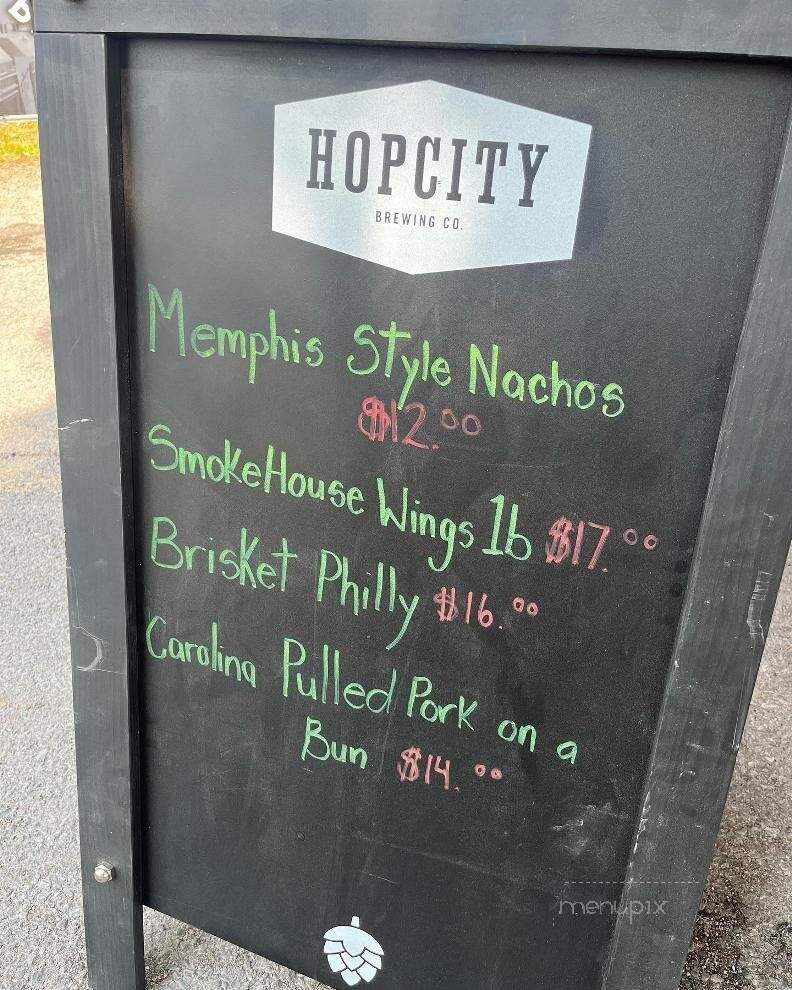 HOPCITY
BREWING CO.
Memphis Style Nachos
$12.00
SmokeHouse Wings 1b $17.00
Brisket Philly $16.00
Carolina Pulled Pork on a
Bun $14.00
menupix